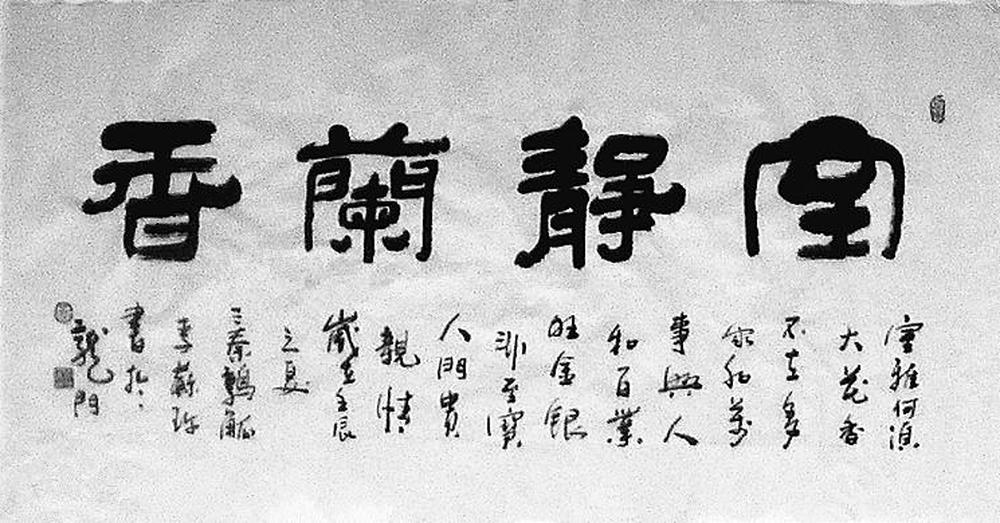 室靜蘭香
室雅何須
大花香
不在多
家和萬
事興人
和百業
旺金銀
非至寶
人間貴
親情
歲在壬辰
之夏
三秦鶴觚
李蘇珍
書於
龍門